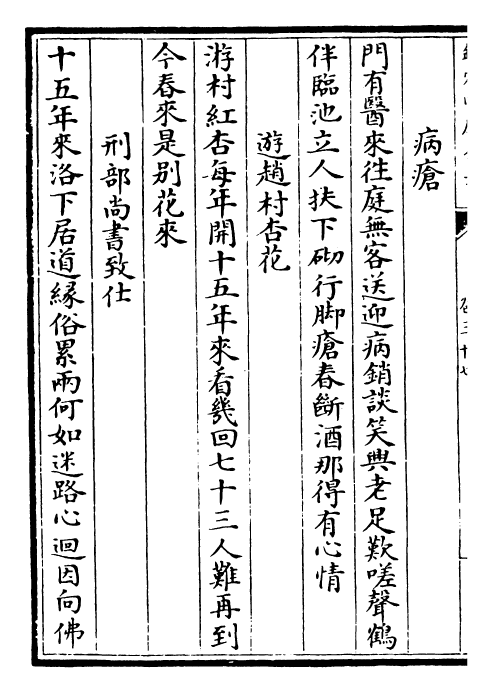 病瘡
門有醫來徃庭無客送迎病銷談笑興老足歎嗟聲鶴
伴臨池立人扶下砌行脚瘡春斷酒那得有心情
遊趙村杏花
游村紅杏每年開十五年來看幾回七十三人難再到
今春來是别花來
刑部尚書致仕
十五年來洛下居道縁俗累兩何如迷路心迴因向佛